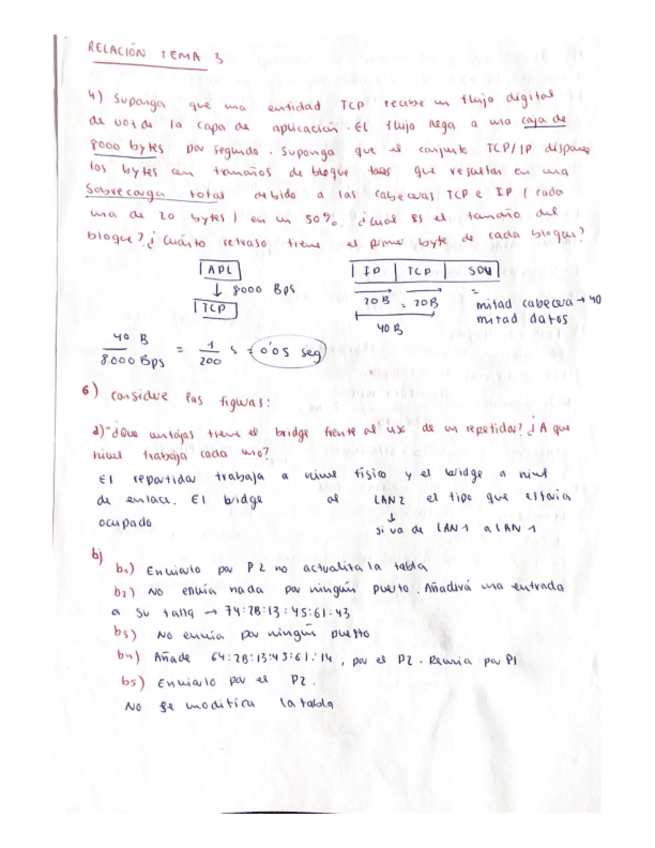 RELACIÓN TEMA 3
4) Suponga que una entidad TCP recibe un flujo digital
de voz de la capa de aplicación. El flujo llega a una caja de
8000 bytes por segundo. Suponga que el conjunto TCP/IP dispone
los bytes en tamaños de bloque tales que resultan en una
sobrecarga total debido a las cabeceras TCP e IP (cada
una de 20 bytes) en un 50%. ¿Cuál es el tamaño del
bloque? ¿Cuánto retraso tiene el primer byte de cada bloque?
APL
↓ 8000 Bps
TCP
IP | TCP | SDU
20B = 20B
40 B
=
mitad cabecera → 40
mitad datos
40 B / 8000 Bps = 1/200 s = 0'05 seg
6) Considere las figuras:
a) ¿Que ventajas tiene el bridge frente al uso de un repetidor? ¿A que
nivel trabaja cada uno?
El repetidor trabaja a nivel físico y el bridge a nivel
de enlace. El bridge al LAN2 el tipo que estaria
ocupado
↓
si va de LAN1 a LAN 1
b)
b1) Enviarlo por P2 no actualiza la tabla
b2) No envía nada por ningún puerto. Añadirá una entrada
a su tabla → 74:2B:13:45:61:43
b3) No envia por ningún puerto
b4) Añade 64:2B:13:45:61:14, por el P2. Reenvia por P1
b5) Enviarlo por el P2.
No se modifica la tabla